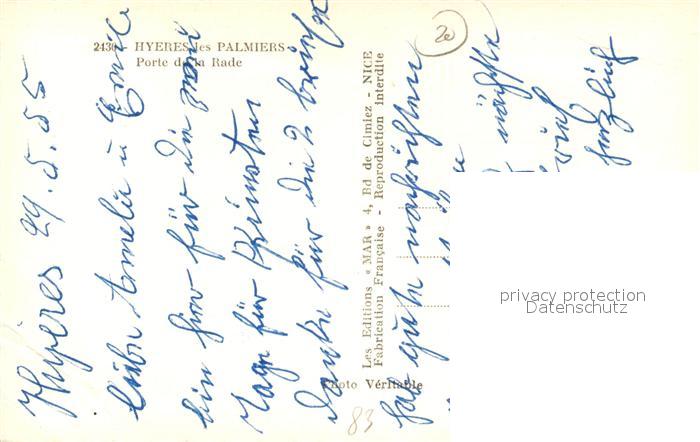 2430 HYERES les PALMIERS
Porte de la Rade
Hyères 29.5.55
Liebe Amelie u Emile
bin hier für die zwei
Tage für Pfingsten
danke für die 2 briefe
hab gute nachrichten
nächste
herzlich
Les Editions « MAR » 4, Bd de Cimiez - NICE
Fabrication Française - Reproduction interdite
Photo Véritable
20
83
privacy protection
Datenschutz